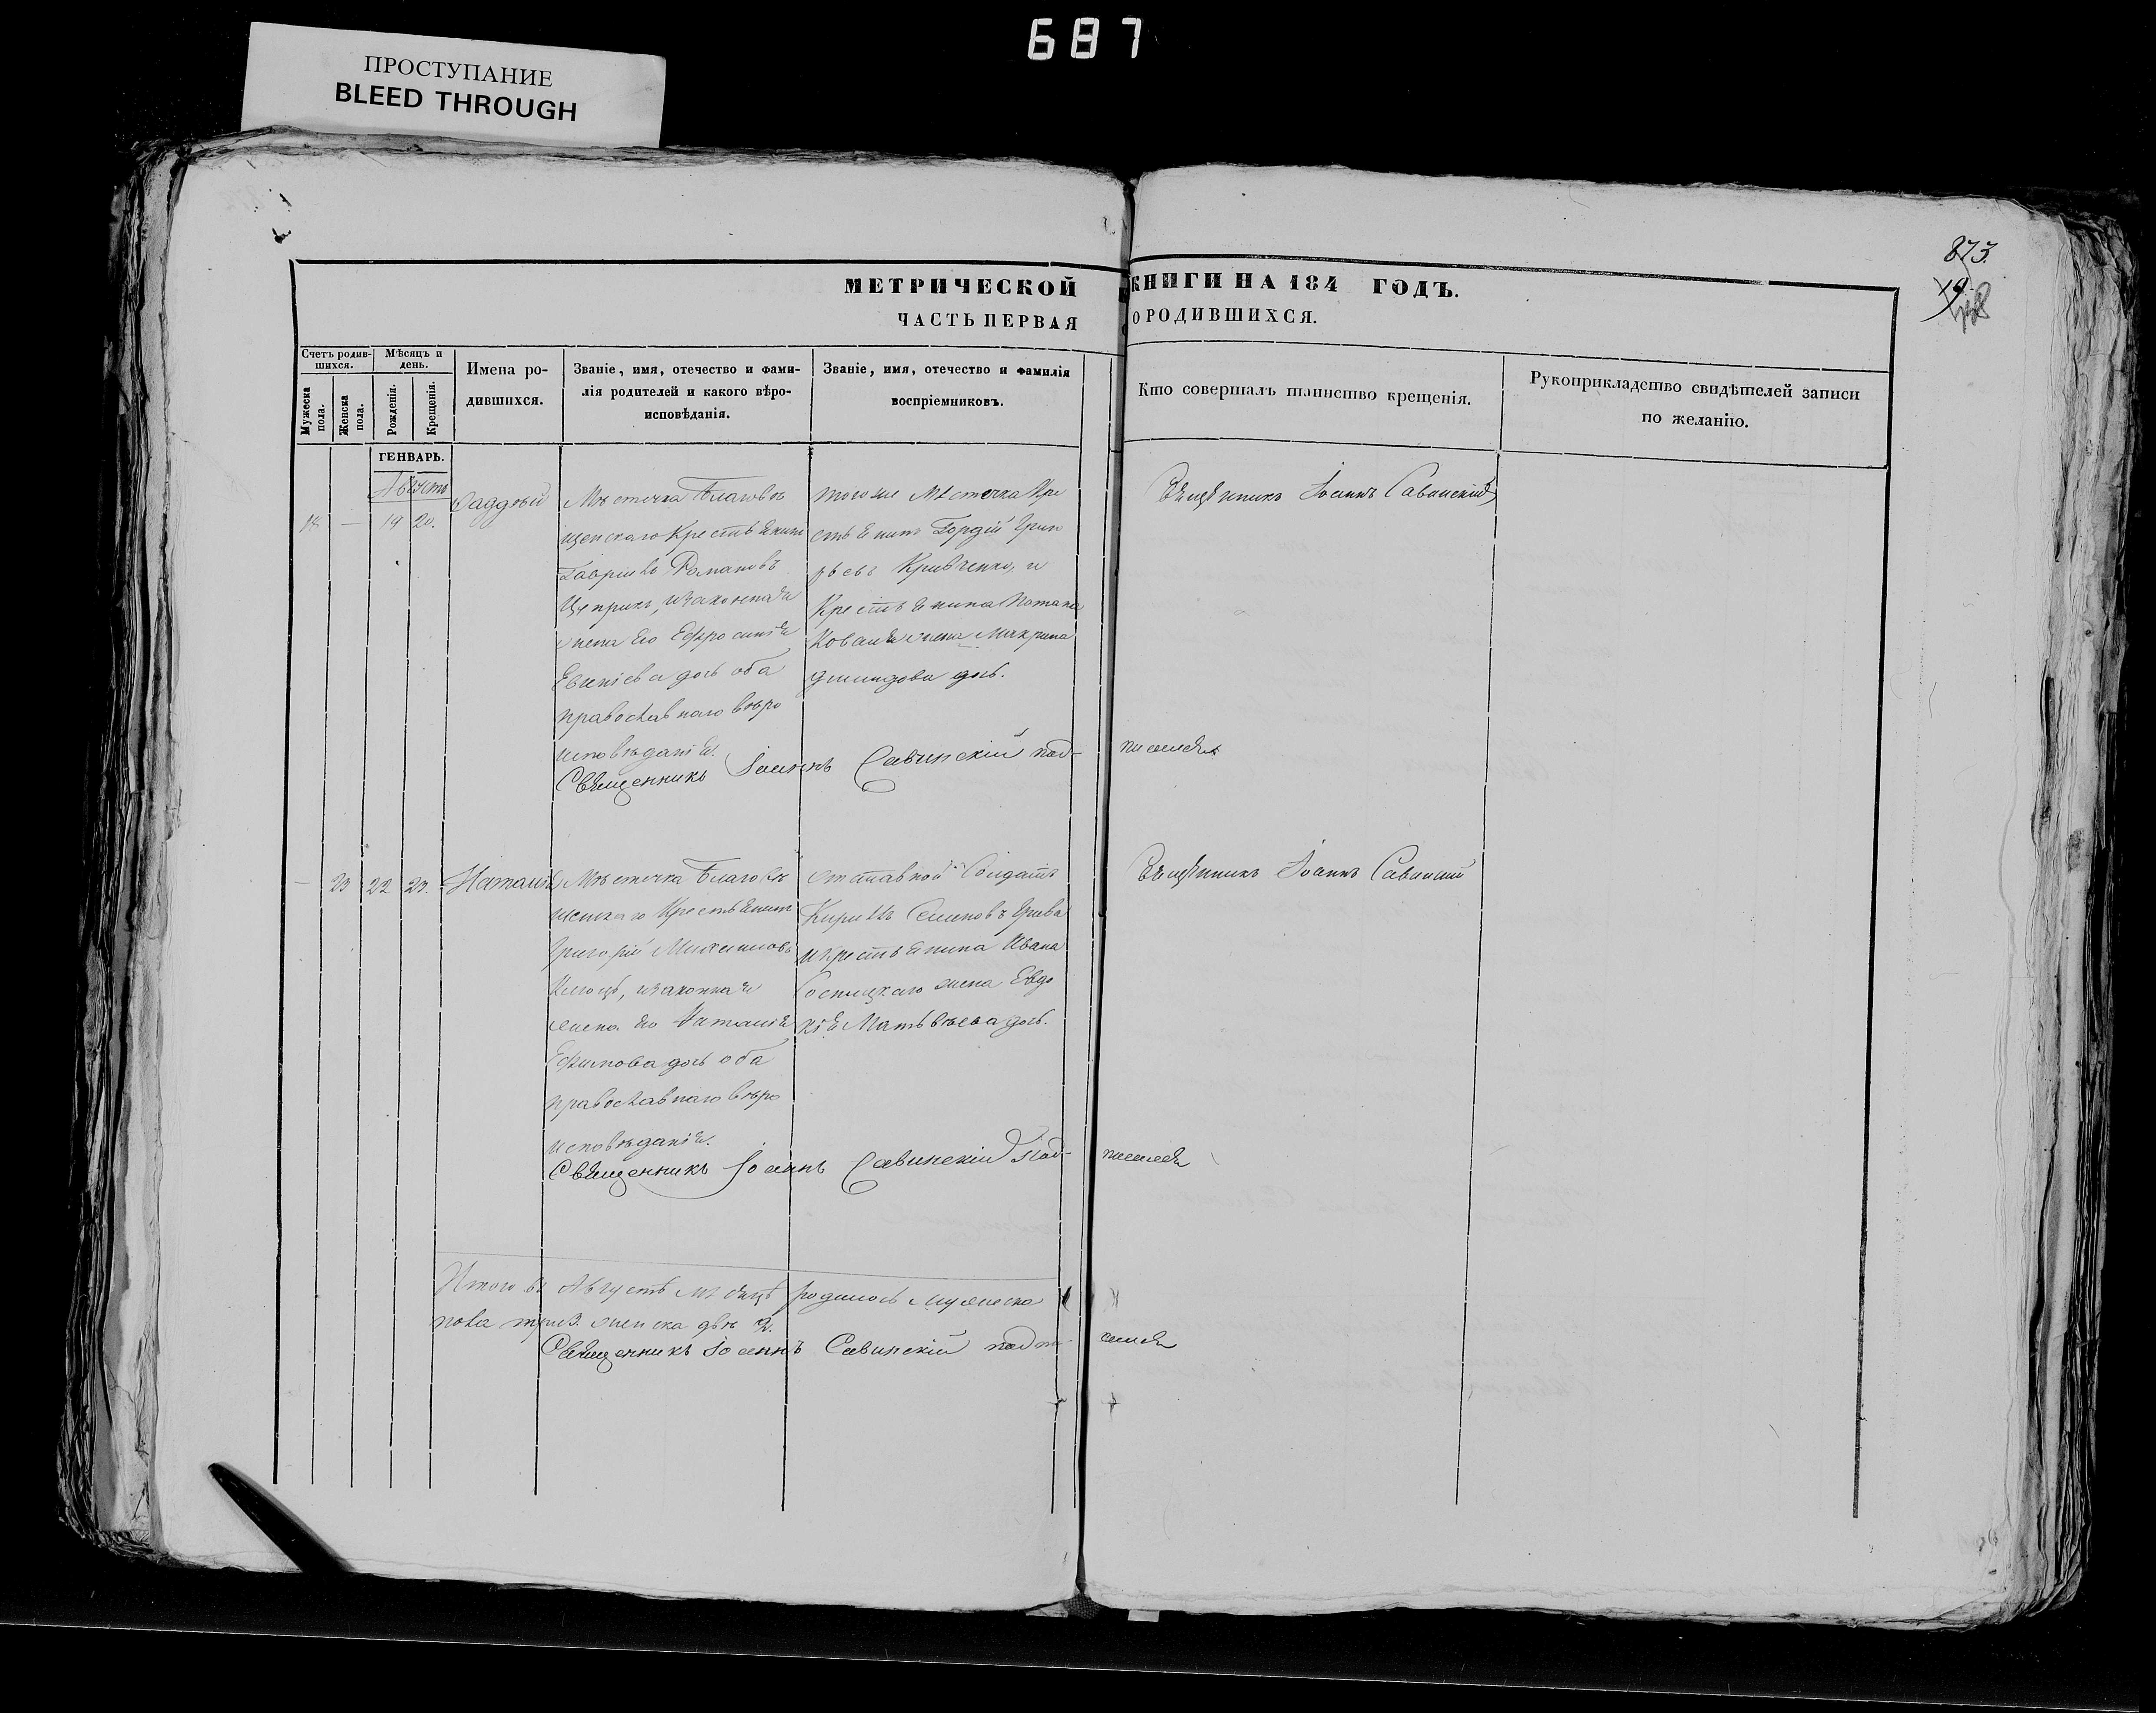 687
ПРОСТУПАНИЕ
BLEED THROUGH
873.
19.
МЕТРИЧЕСКОЙ КНИГИ НА 184 ГОДЪ.
ЧАСТЬ ПЕРВАЯ О РОДИВШИХСЯ.
Счетъ родив-
шихся.
Мужеска пола.
Женска пола.
Мѣсяцъ и
день.
Рожденія.
Крещенія.
Имена ро-
дившихся.
Званіе, имя, отечество и фами-
лія родителей и какого вѣро-
исповѣданія.
Званіе, имя, отечество и фамилія
воспріемниковъ.
Кто совершалъ таинство крещенія.
Рукоприкладство свидѣтелей записи
по желанію.
ГЕНВАРЬ.
Августъ
18 — 19 20.
Фаддѣй
Мѣстечка Благовѣ
щенскаго Крестьянинъ
Гавріилъ Романовъ
изаконная
жена его Ефросинія
дочь оба
православнаго вѣро
исповѣданія.
того же Мѣстечка Кре
стьянинъ Гордій Григо
рьевъ Кривченко, и
Крестьянина Потапа
Коваля жена Макрина
дочь.
Священникъ Іоаннъ Савинскій
Священникъ Іоаннъ Савинскій под-
писался
— 23 22 23.
Наталія
Мѣстечка Благовѣ
щенскаго Крестьянинъ
Григорій Михаиловъ
изаконная
жена его Наталія
Ефимова дочь оба
православнаго вѣро
исповѣданія.
отставной Солдатъ
Кирилъ Семеновъ Грива
икрестьянина Ивана
жена Евдо
кія Матвѣева дочь.
Священникъ Іоаннъ Савинскій
Священникъ Іоаннъ Савинскій под-
писался
Итого въ Августѣ мѣсяцѣ родилось мужеска
пола три 3. женска двѣ 2.
Священникъ Іоаннъ Савинскій подпи-
сался